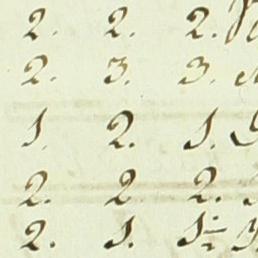 2. 2. 2.
2. 3. 3.
1. 2. 1.
2. 2 2.
2. 1. 1